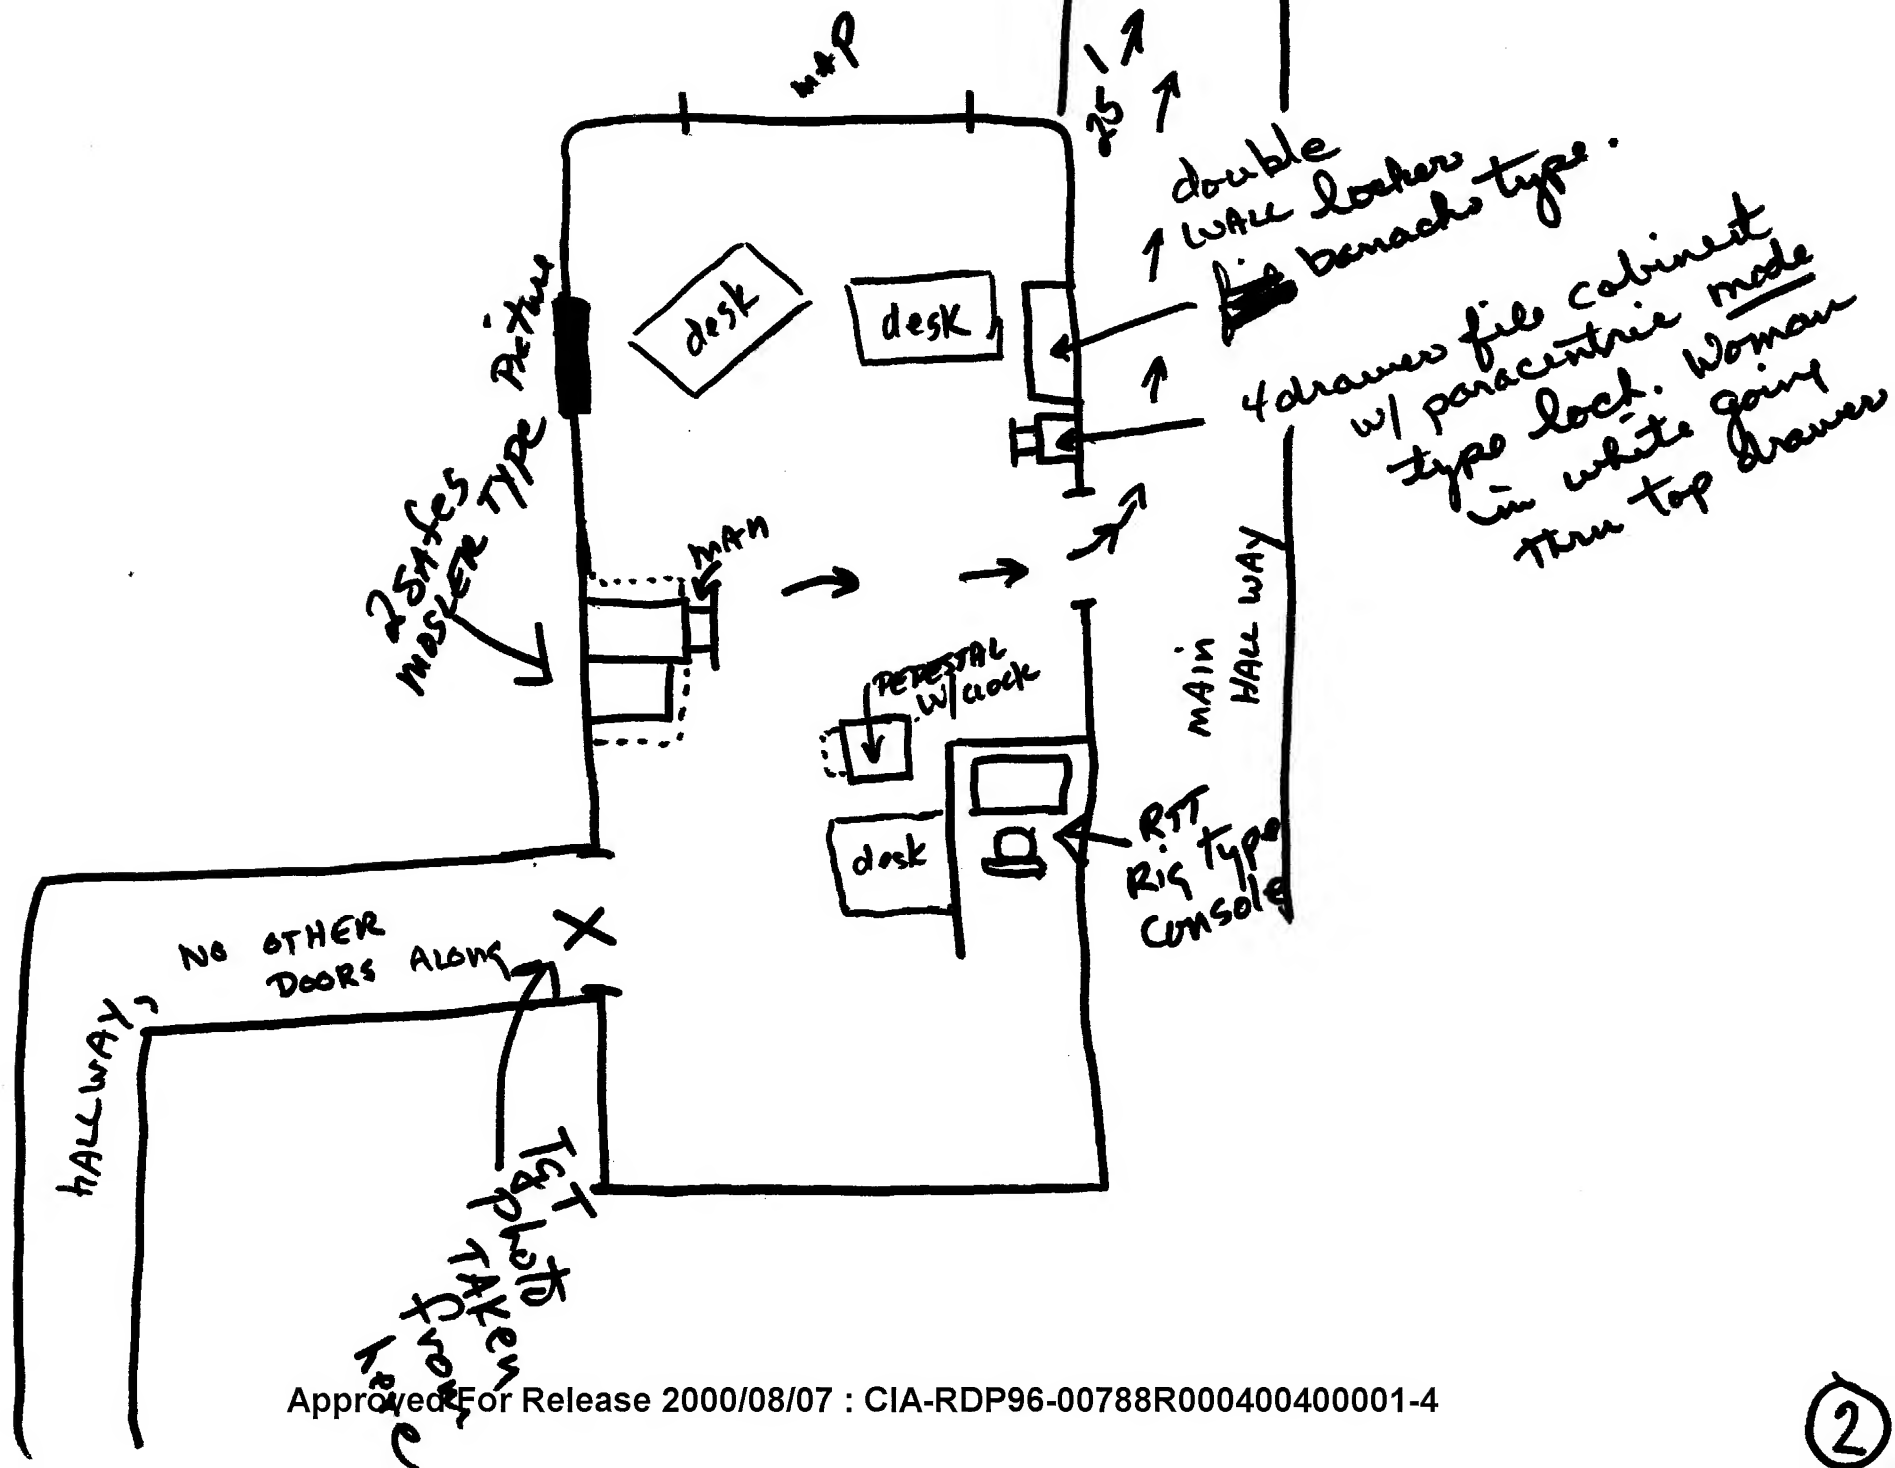 MAP
25 1
double
WALL locker
barracks type.
4 drawer file cabinet
w/ paracentric mode
type lock. Woman
in white going
thru top drawer
Picture
desk
desk
2 SAfes
MOSLER TYPE
MAN
MAIN
HALL WAY
PEDESTAL
W/ClOCK
desk
RTT
RIG type
CONSOLE
NO OTHER
DOORS ALONG
HALLWAY,
1ST
PhOTO
TAKEN
from
here
Approved For Release 2000/08/07 : CIA-RDP96-00788R000400400001-4
2